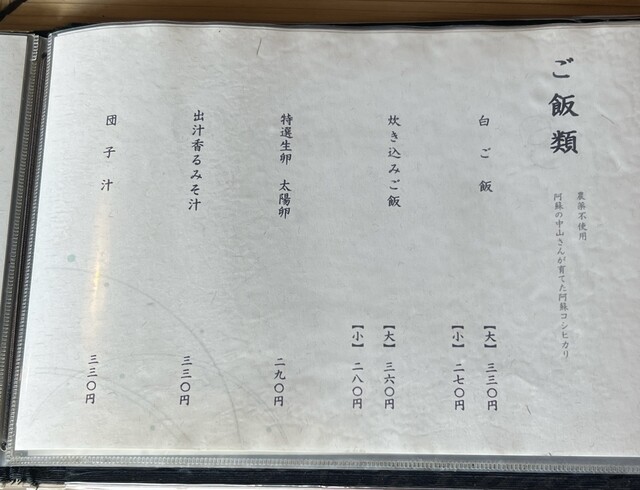 ご飯類
農薬不使用
阿蘇の中山さんが育てた阿蘇コシヒカリ
白ご飯
【大】 三三〇円
【小】 二七〇円
炊き込みご飯
【大】 三六〇円
【小】 二八〇円
特選生卵 太陽卵
二九〇円
出汁香るみそ汁
三三〇円
団子汁
三三〇円